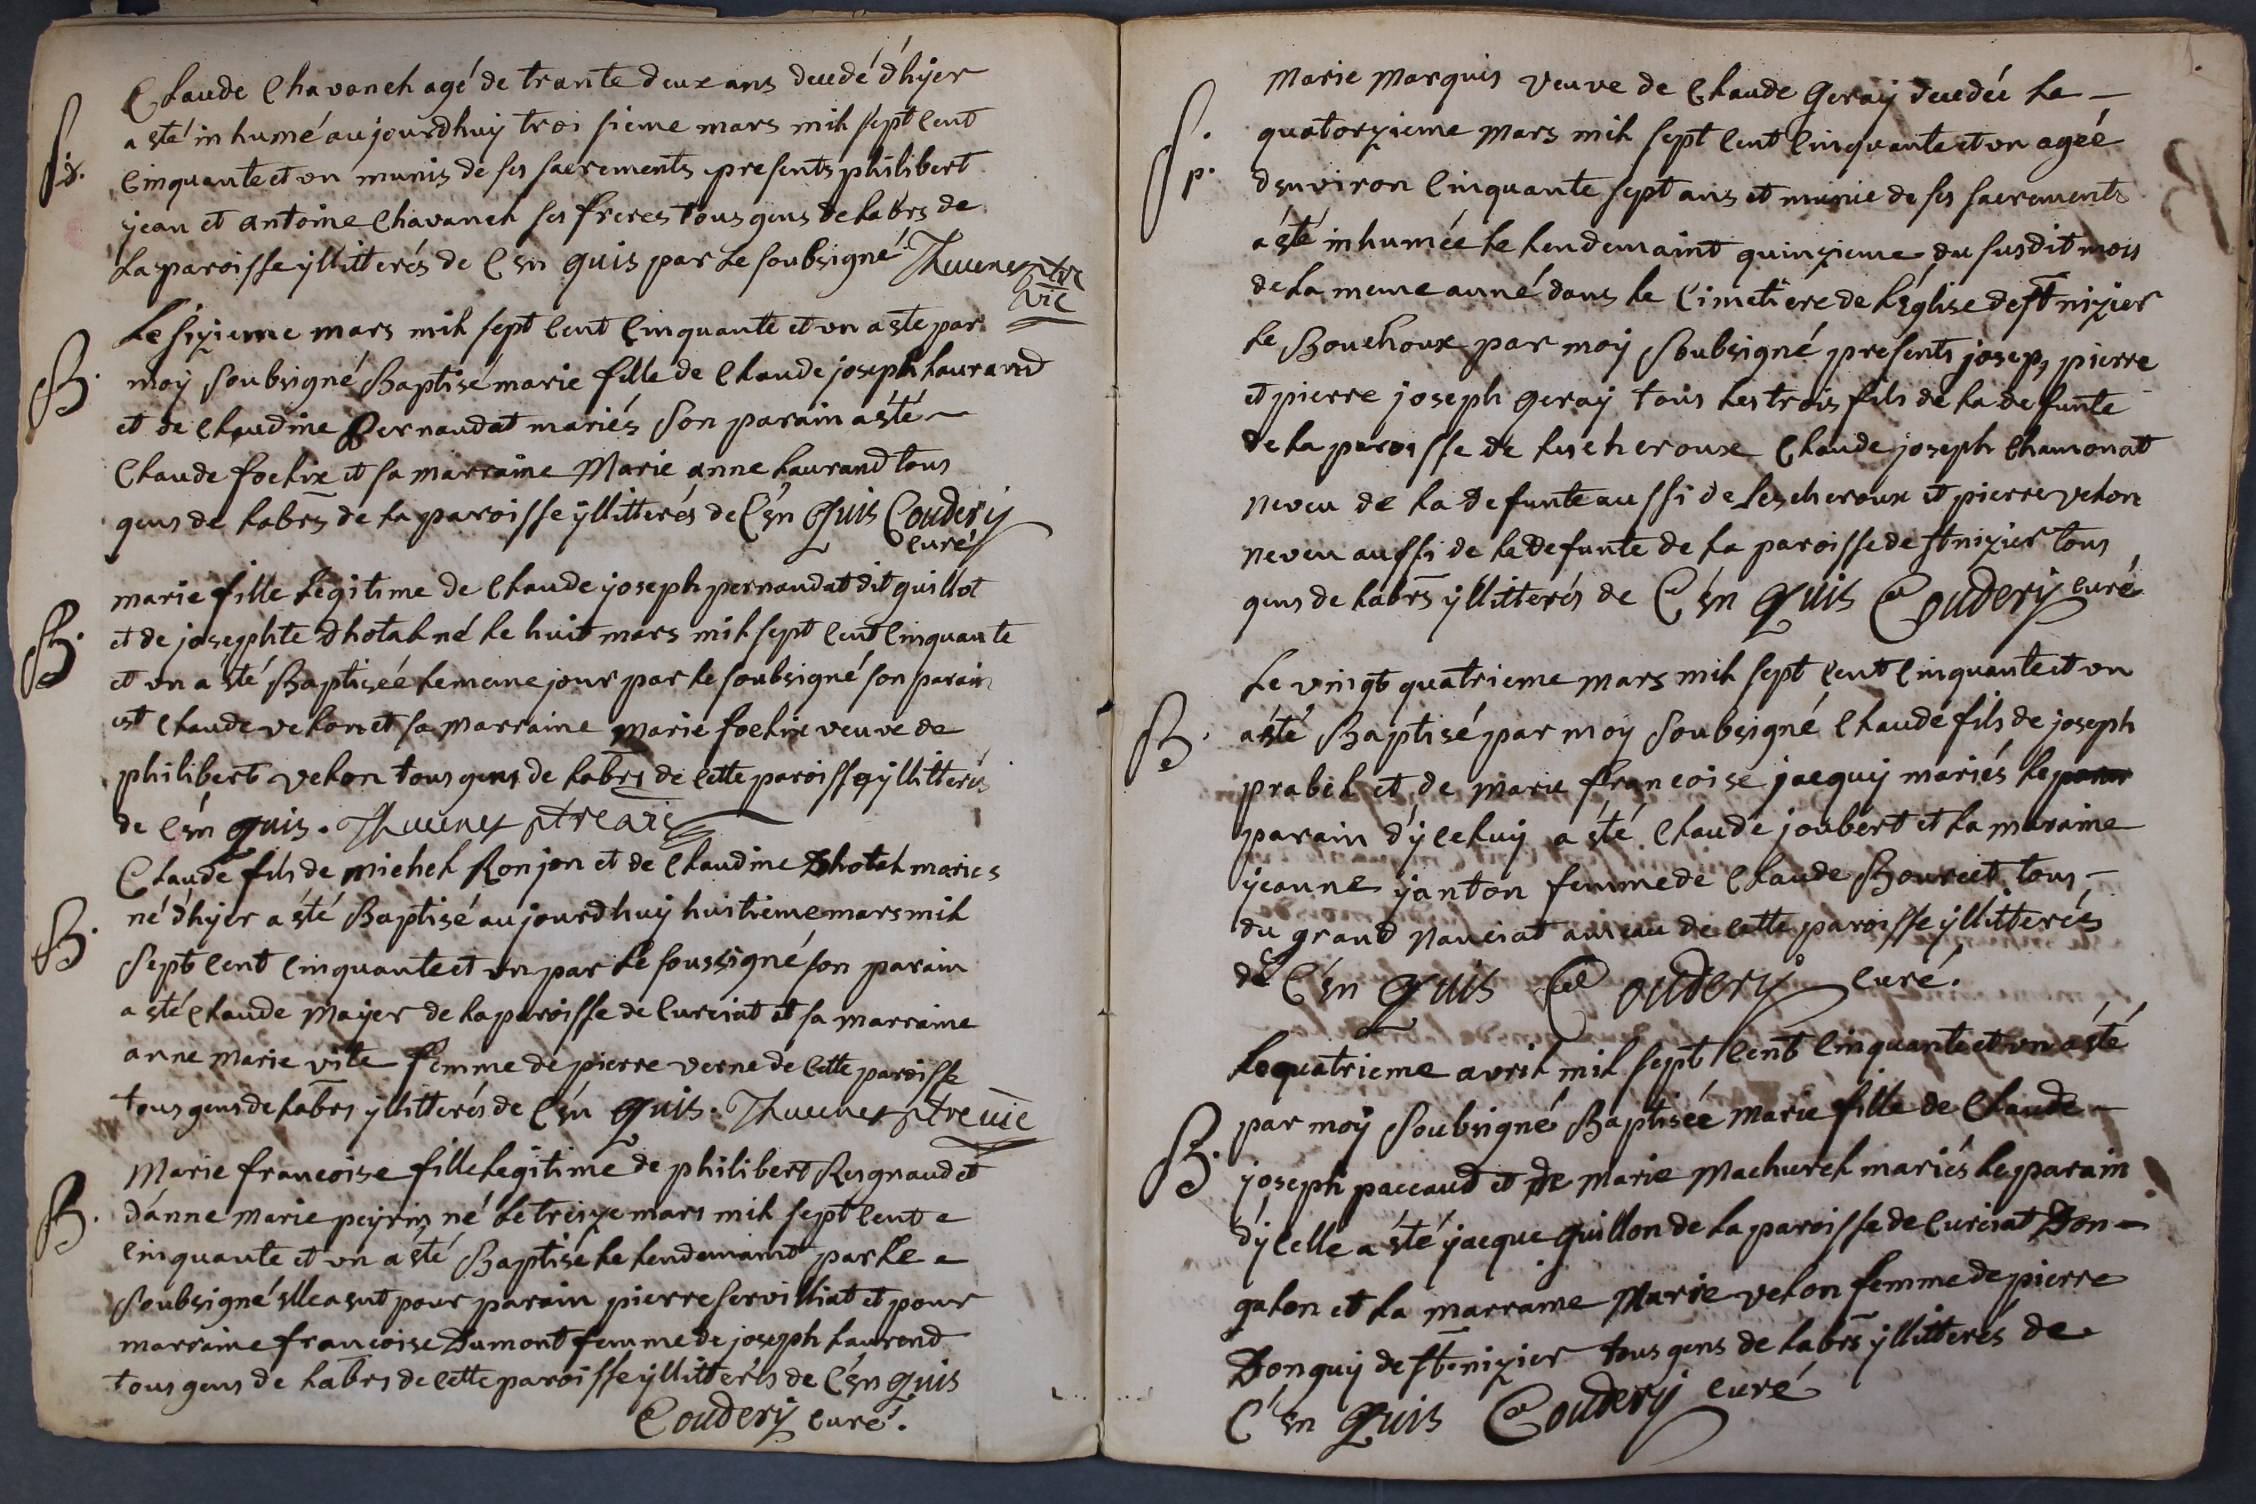 Claude Chavanel agé de trante deux ans decedé d'hÿer
a sté inhumé aujourdhuÿ troi sieme mars mil sept cent
S. d.
cinquante et un munis de ses sacrements presents philibert
jean et antoine Chavanel ses freres tous gens de labrs de
la paroisse ÿllitterés de C'en quis par le soubsigné Thuuner ptre
vic
Le sizieme mars mil sept cent cinquante et un a sté par
B.
moÿ soubsigné Baptisé marie fille de Claude joseph laurand
et de Claudine Pernaudat mariés son parain a sté
Claude foelix et sa marraine Marie anne laurand tous
gens de labrs de la paroisse ÿllitterés de C'en quis Couderÿ
curé
marie fille legitime de Claude joseph pernaudat dit guillot
B.
et de josephte dhotal né le huit mars mil sept cent cinquante
et un a sté Baptiseé le meme jour par le soubsigné son parain
est Claude velon et sa marraine marie foelix veuve de
philibert velon tous gens de labrs de cette paroisse ÿllitterés
de C'en quis. Thuuner ptre vic
Claude fils de michel Ronjon et de Claudine Dhotal mariés
né d'hÿer a sté Baptisé aujourdhuÿ huitieme mars mil
B.
sept cent cinquante et un par le soussigné son parain
a sté Claude Maÿer de la paroisse de Curciat et sa marraine
anne marie vite femme de pierre verne de cette paroisse
tous gens de labrs ÿllitterés de C'en quis. Thuuner ptre vic
Marie francoise fille legitime de philibert Regnaud et
B.
d'anne marie peÿrin né le treize mars mil sept cent
cinquante et un a sté Baptisé le lendemaint par le
soubsigné elle a eut pour parain pierre servilliat et pour
marraine francoise Dumont femme de joseph laurend
tous gens de labrs de cette paroisse ÿllitterés de C'en quis
Couderÿ curé.
Marie Marquis veuve de Claude Geraÿ decedée la
S. p.
quatorzieme Mars mil sept cent cinquante et un ageé
d'environ cinquante sept ans et munie de ses sacrements
a sté inhumée le lendemaint quinzieme du susdit mois
de la meme anné dans le Cimetiere de l'Eglise de st nizier
le Bouchoux par moÿ soubsigné presents josep, pierre
et pierre joseph geraÿ tous les trois fils de la defunte
de la paroisse de lescheroux Claude joseph Chamonat
neveu de la defunte aussi de Lescheroux et pierre velon
neveu aussi de la defunte de la paroisse de st nizier tous
gens de labrs ÿllitterés de C'en quis Couderÿ curé
Le vingt quatrieme mars mil sept cent cinquante et un
B.
a sté Baptisé par moÿ soubsigné Claude fils de joseph
prabel et de marie francoise jacquÿ mariés le
parain d'ÿceluÿ a sté Claude joubert et la maraine
jeanne janton femme de Claude Bourcet tous
du grand nanciat ameau de cette paroisse ÿllitterés
de C'en quis Couderÿ curé.
Le quatrieme avril mil sept cent cinquante et un a sté
B.
par moÿ soubsigné Baptisée Marie fille de Claude
joseph paccaud et de Marie Machurel mariés le parain
d'ÿcelle a sté jacque guillon de la paroisse de Curciat Don-
galon et la marraine Marie velon femme de pierre
Donguÿ de st nizier tous gens de labrs ÿllitterés de
C'en quis Couderÿ curé